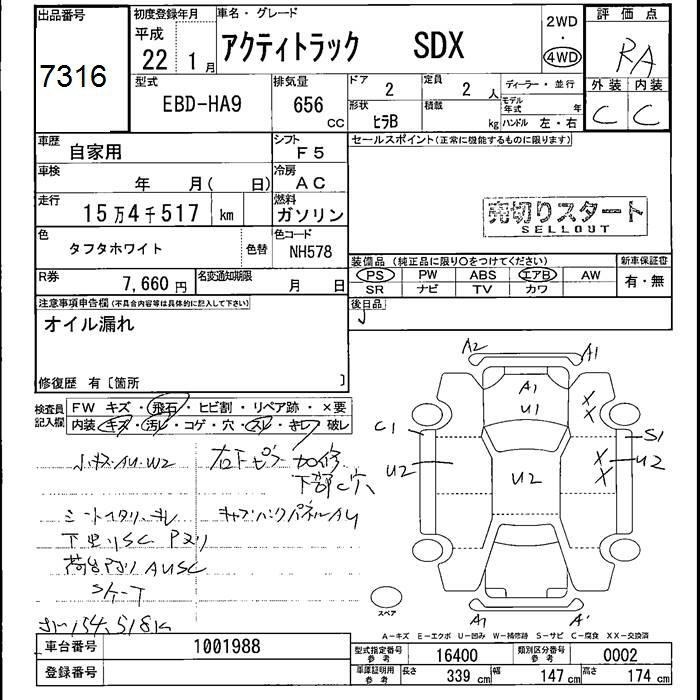 出品番号
7316
初度登録年月
平成
22 1月
車名・グレード
アクティトラック SDX
2WD
・
4WD
評価点
RA
外装 内装
C C
型式
EBD-HA9
排気量
656 CC
ドア
2
定員
2人
形状
ヒラB
積載
kg
ディーラー・並行
モデル年式 年
ハンドル 左・右
車歴
自家用
シフト
F5
車検
年 月( 日)
冷房
AC
走行
15万4千517 km
燃料
ガソリン
色
タフタホワイト
色替
色コード
NH578
R券
7,660円
名変通知期限
月 日
セールスポイント(正常に機能するものに限ります)
売切りスタート
SELLOUT
装備品(純正品に限り○をつけてください)
PS PW ABS エアB AW
SR ナビ TV カワ
新車保証書
有・無
後日品
注意事項申告欄(不具合内容等は具体的に記入して下さい)
オイル漏れ
修復歴 有〔箇所 〕
検査員
記入欄
FW キズ・飛石・ヒビ割・リペア跡・×要
内装・キズ・汚レ・コゲ・穴・スレ・キレ・破レ
小キズ・AU・W2
右下ピラー加修
下部C穴
シートスタリ、キレ
キャブバックパネルAU
下回リSC Pヌリ
荷台PヌリAUSC
154,518K
A2 A1
A1
U1
X
X
C1 S1
U2 U2 X U2
X
スペア
A1 A'
A-キズ E-エクボ U-凹み W-補修跡 S-サビ C-腐食 XX-交換済
車台番号
1001988
登録番号
型式指定番号
参考
16400
類別区分番号
参考
0002
車庫証明用
参考
長さ 339 cm 幅 147 cm 高さ 174 cm